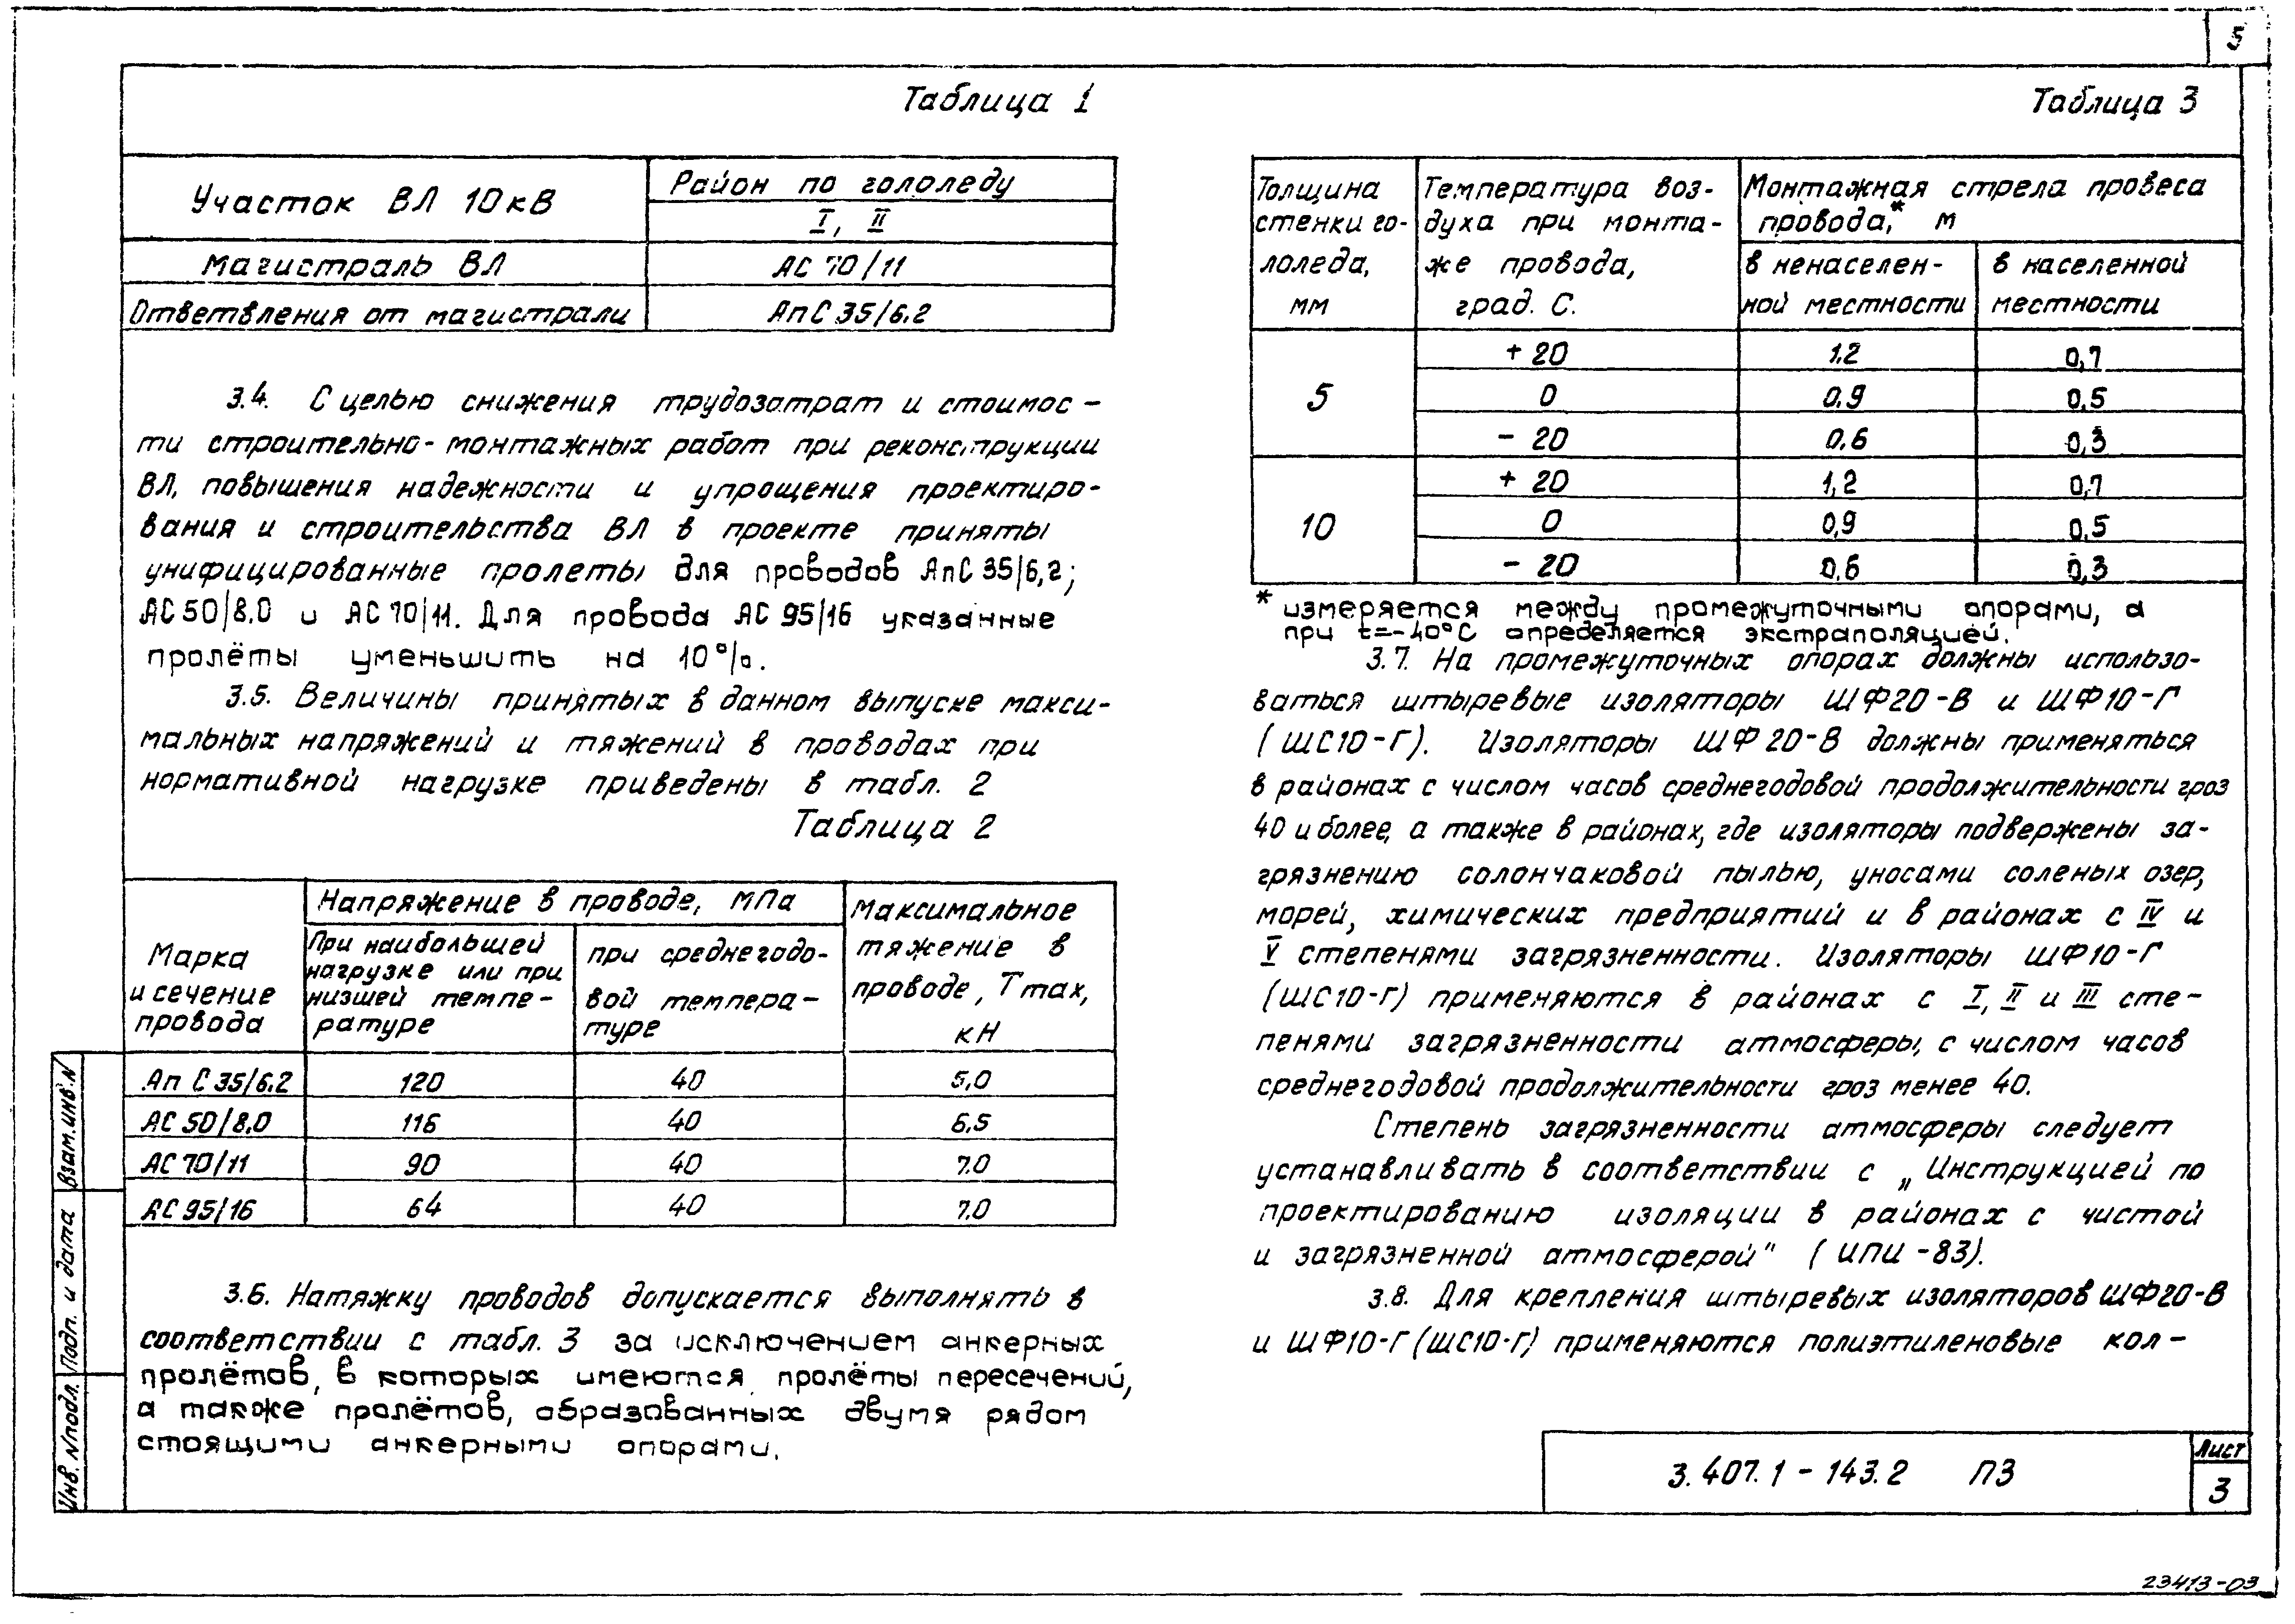 5
Таблица 1
Участок ВЛ 10кВ
Район по гололеду
I, II
Магистраль ВЛ
АС 70/11
Ответвления от магистрали
АпС 35/6.2
3.4. С целью снижения трудозатрат и стоимос-
ти строительно-монтажных работ при реконструкции
ВЛ, повышения надежности и упрощения проектиро-
вания и строительства ВЛ в проекте приняты
унифицированные пролеты для проводов АпС 35/6,2;
АС 50/8.0 и АС 70/11. Для провода АС 95/16 указанные
пролёты уменьшить на 10%.
3.5. Величины принятых в данном выпуске макси-
мальных напряжений и тяжений в проводах при
нормативной нагрузке приведены в табл. 2
Таблица 2
Марка
и сечение
провода
Напряжение в проводе, МПа
При наибольшей
нагрузке или при
низшей темпе-
ратуре
при среднегодо-
вой темпера-
туре
Максимальное
тяжение в
проводе, Tmax,
кН
Ап С 35/6.2 120 40 5,0
АС 50/8.0 116 40 6,5
АС 70/11 90 40 7.0
АС 95/16 64 40 7.0
3.6. Натяжку проводов допускается выполнять в
соответствии с табл. 3 за исключением анкерных
пролётов, в которых имеются пролёты пересечений,
а также пролётов, образованных двумя рядом
стоящими анкерными опорами.
Таблица 3
Толщина
стенки го-
лоледа,
мм
Температура воз-
духа при монта-
же провода,
град. С.
Монтажная стрела провеса
провода,* м
в ненаселен-
ной местности
в населенной
местности
5
+ 20 1.2 0,7
0 0.9 0.5
- 20 0.6 0,3
10
+ 20 1,2 0,7
0 0,9 0.5
- 20 0.6 0.3
* измеряется между промежуточными опорами, а
при t=-40°С определяется экстраполяцией.
3.7. На промежуточных опорах должны использо-
ваться штыревые изоляторы ШФ20-В и ШФ10-Г
(ШС10-Г). Изоляторы ШФ 20-В должны применяться
в районах с числом часов среднегодовой продолжительности гроз
40 и более, а также в районах, где изоляторы подвержены за-
грязнению солончаковой пылью, уносами соленых озер,
морей, химических предприятий и в районах с IV и
V степенями загрязненности. Изоляторы ШФ10-Г
(ШС10-Г) применяются в районах с I, II и III сте-
пенями загрязненности атмосферы, с числом часов
среднегодовой продолжительности гроз менее 40.
Степень загрязненности атмосферы следует
устанавливать в соответствии с „Инструкцией по
проектированию изоляции в районах с чистой
и загрязненной атмосферой" (ИПИ-83).
3.8. Для крепления штыревых изоляторов ШФ20-В
и ШФ10-Г (ШС10-Г) применяются полиэтиленовые кол-
Инв. N подл.
Подп. и дата
Взам. инв. N
3.407.1-143.2 ПЗ
Лист
3
23413-03